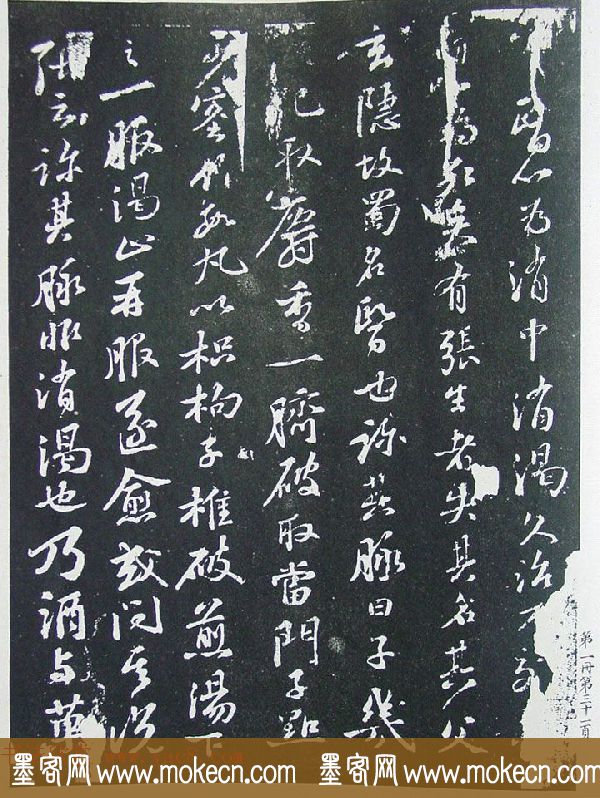 醫以為消中消渴久治不
有張生者失其名其父
玄隱故蜀名醫也診其脈曰子幾
取麝香一臍破取當門子點
蜜作數丸以枳枸子椎破煎湯下
之一服渴止再服遂愈或問其說
張云診其脈非消渴也乃酒與
第一冊第二十一頁
墨客网 www.mokecn.com 墨客网 www.mokecn.com